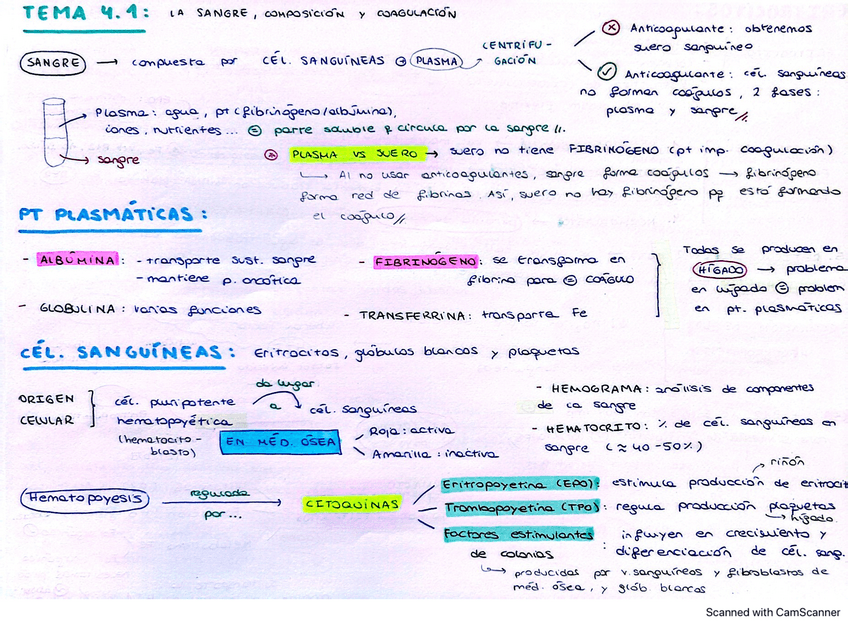 TEMA 4.1: LA SANGRE, COMPOSICIÓN Y COAGULACIÓN
SANGRE → compuesta por CÉL. SANGUÍNEAS ⊕ PLASMA → CENTRIFU-
GACIÓN
ⓧ Anticoagulante: obtenemos
suero sanguíneo
✓ Anticoagulante: cél. sanguíneas
no forman coágulos, 2 fases:
plasma y sangre //
→ Plasma: agua, pt (fibrinógeno/albúmina),
iones, nutrientes... ⊜ parte soluble q circula por la sangre //.
→ sangre
ⓧ PLASMA VS SUERO → suero no tiene FIBRINÓGENO (pt imp. coagulación)
↳ Al no usar anticoagulantes, sangre forma coágulos → fibrinógeno
forma red de fibrinas. Así, suero no hay fibrinógeno pq está formando
el coágulo //
PT PLASMÁTICAS:
- ALBÚMINA: - transporte sust. sangre
- mantiene p. oncótica
- GLOBULINA: varias funciones
- FIBRINÓGENO: se transforma en
fibrina para ⊜ COÁGULO
- TRANSFERRINA: transporta Fe
Todas se producen en
HÍGADO → problema
en hígado ⊜ problem
en pt. plasmáticas
CÉL. SANGUÍNEAS: Eritrocitos, glóbulos blancos y plaquetas
ORIGEN
CELULAR
cél. pluripotente
hematopoyética
(hematocito-
blasto)
da lugar
a
cél. sanguíneas
EN MÉD. ÓSEA
Roja: activa
Amarilla: inactiva
- HEMOGRAMA: análisis de componentes
de la sangre
- HEMATOCRITO: % de cél. sanguíneas en
sangre (≈ 40-50%)
Hematopoyesis
regulada
por...
CITOQUINAS
riñón
Eritropoyetina (EPO): estimula producción de eritrocit
Trombopoyetina (TPO): regula producción plaquetas
→ hígado
Factores estimulantes
de colonias
: influyen en crecimiento y
diferenciación de cél. sang.
↳ producidas por v. sanguíneos y fibroblastos de
méd. ósea, y glób. blancos
Scanned with CamScanner